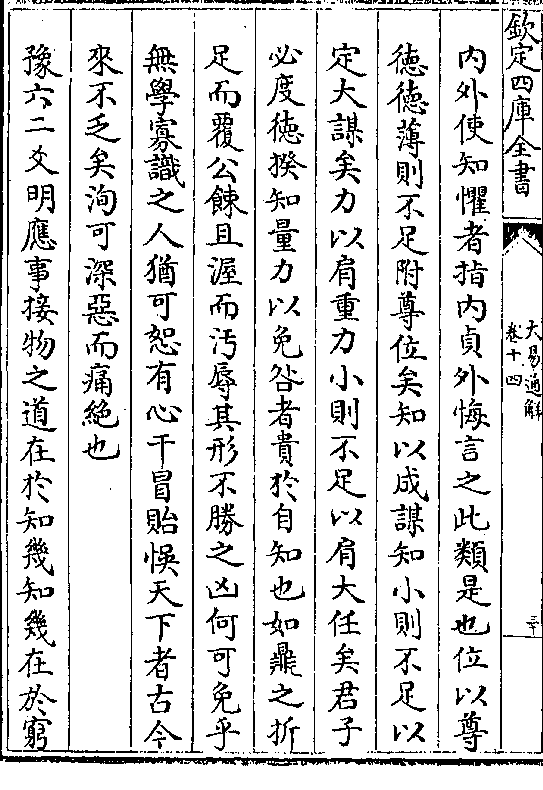 欽定四庫全書
大易通解
卷十四
三十
内外使知懼者指内貞外悔言之此類是也位以尊
徳徳薄則不足附尊位矣知以成謀知小則不足以
定大謀矣力以肩重力小則不足以肩大任矣君子
必度徳揆知量力以免咎者貴於自知也如鼎之折
足而覆公餗且渥而汚辱其形不勝之凶何可免乎
無學寡識之人猶可恕有心干冒貽悞天下者古今
來不乏矣洵可深惡而痛絶也
豫六二爻明應事接物之道在於知幾知幾在於窮